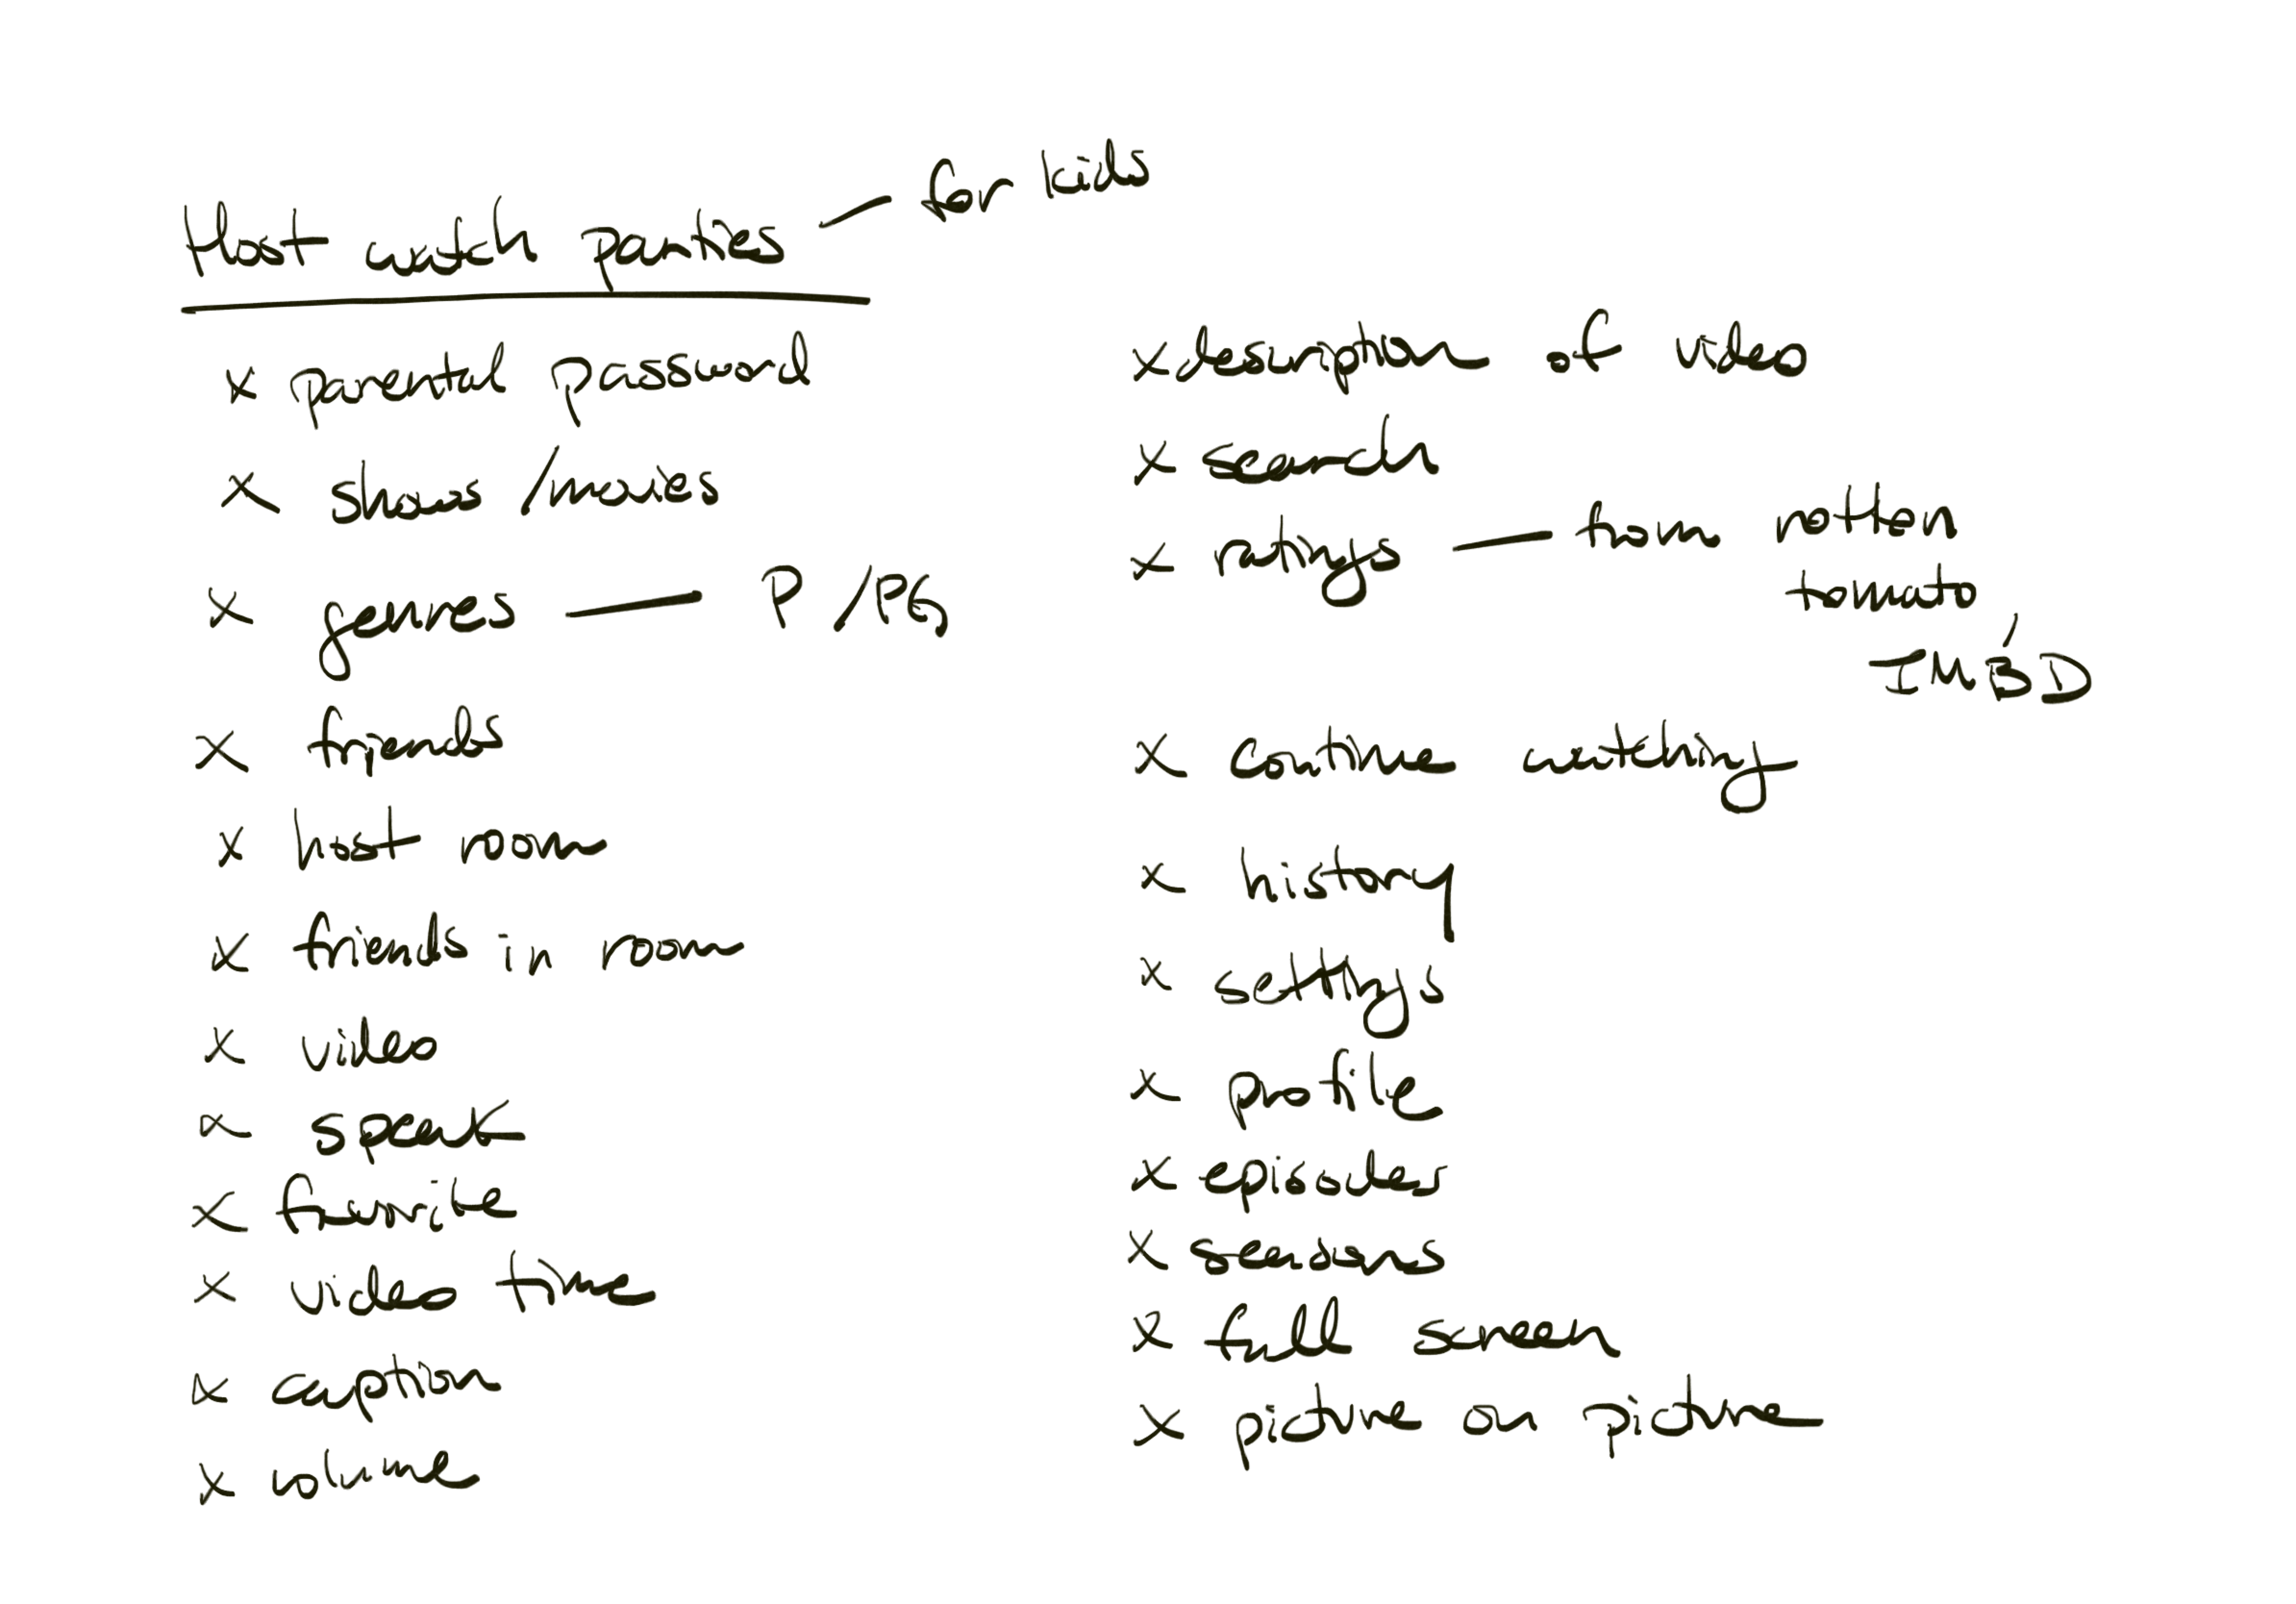 Host watch parties — for kids
x parental password
x shows / movies
x genres — P / PG
x friends
x host room
x friends in room
x video
x speak
x favorite
x video time
x caption
x volume
x description of video
x search
x ratings — from rotten
tomato,
IMBD
x continue watching
x history
x settings
x profile
x episodes
x seasons
x full screen
x picture on picture